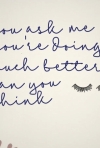 you ask me
you're doing
much better
than you
think